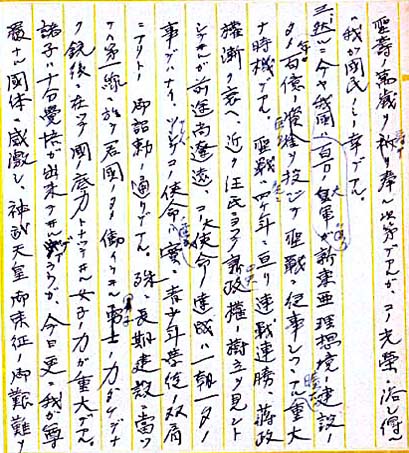 聖寿ノ萬歳ヲ祈リ奉ル次第デアルガ、コノ光榮ニ浴シ得ル
我ガ國民ノ幸デアル。
然ルニ今ヤ我國ハ百万ノ皇軍ガ新東亜理想境ノ建設ノ
タメ百億ノ費ヲ投ジテ聖戰ニ従事シツツアル重大
ナ時機デアル。聖戰四年ニ亘リ連戰連勝、蒋政
權漸ク衰ヘ、近ク汪氏ニヨル新政權ノ樹立ヲ見ント
シツルガ前途尚遼遠コノ大使命ノ達成ハ一朝一夕ノ
事デハナイ、ソシテコノ使命ハ實ニ青少年學徒ノ双肩
ニアリトノ御詔勅ノ通リデアル。殊ニ長期建設ニ當ツ
テハ第一線ニ於テ君國ノタメ働イテキル男子ノ力ダケデナ
ク銃後ニ在ツテ國ノ底力トナツテキル女子ノ力ガ重大デアル。
諸子ハ十分覺悟ガ出来テキルデアラウガ、今日更ニ我ガ尊
嚴ナル國体ニ感激シ、神武天皇御東征ノ御艱難ヲ